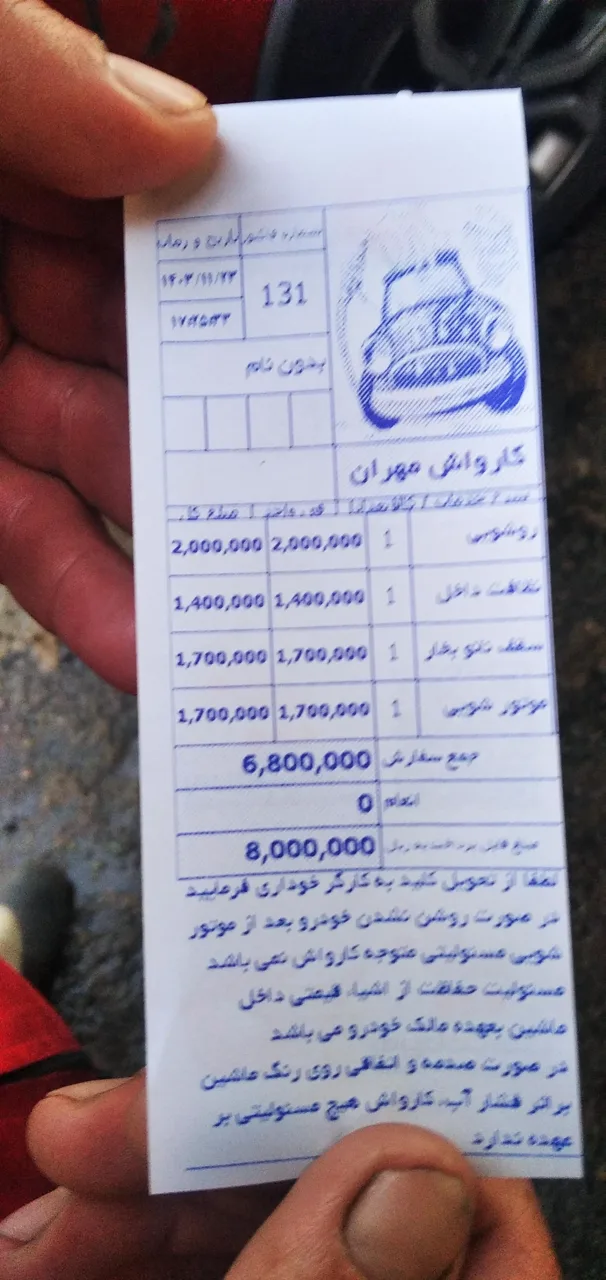 شماره فاکتور تاریخ و زمان
131
۱۴۰۳/۱۱/۲۳
بدون نام
کارواش مهران
روشویی 1 2,000,000 2,000,000
نظافت داخل 1 1,400,000 1,400,000
سقف نانو بخار 1 1,700,000 1,700,000
موتور شویی 1 1,700,000 1,700,000
جمع سفارش 6,800,000
انعام 0
8,000,000
لطفا از تحویل کلید به کارگر خوداری فرمایید
در صورت روشن نشدن خودرو بعد از موتور
شویی مسئولیتی متوجه کارواش نمی باشد
مسئولیت حفاظت از اشیاء قیمتی داخل
ماشین بعهده مالک خودرو می باشد
در صورت صدمه و اتفاقی روی رنگ ماشین
بر اثر فشار آب، کارواش هیچ مسئولیتی بر
عهده ندارد